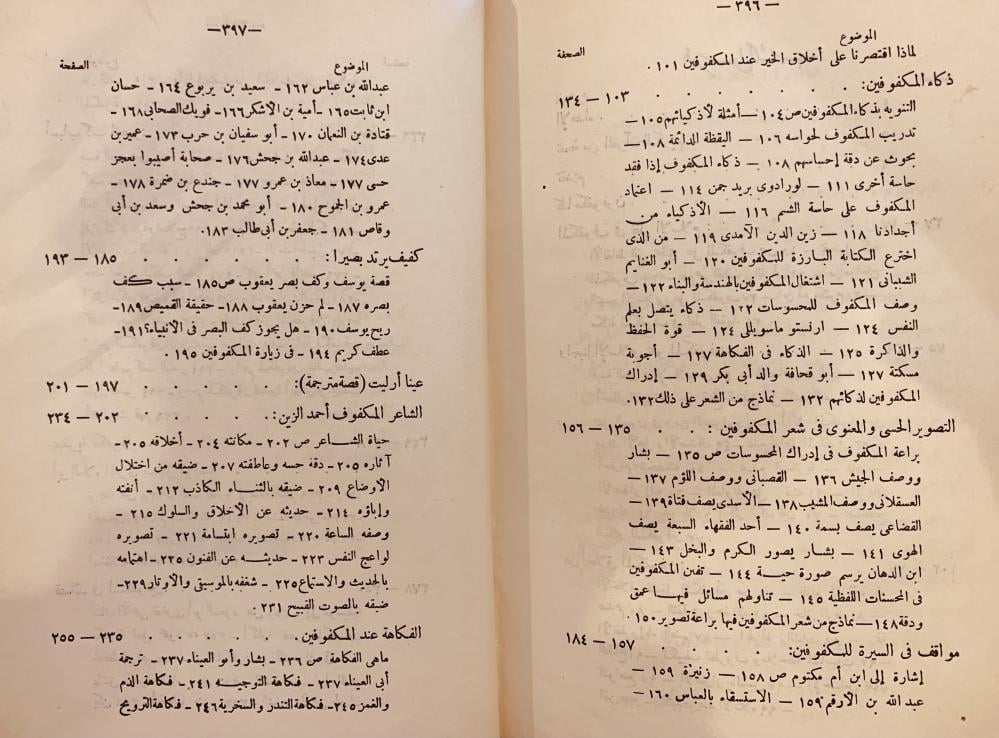 — ٣٩٦ —
الموضوع
الصفحة
لماذا اقتصرنا على أخلاق الخير عند المكفوفين ١٠١ .
ذكاء المكفوفين: . . . . . . . ١٠٣ — ١٣٤
التنويه بذكاء المكفوفين ص ١٠٤ — أمثلة لأذكيائهم ١٠٥ —
تدريب المكفوف لحواسه ١٠٦ — اليقظة الدائمة ١٠٨ —
بحوث عن دقة إحساسهم ١٠٨ — ذكاء المكفوف إذا فقد
حاسة أخرى ١١١ — لورادوى بريد جمن ١١٤ — اعتماد
المكفوف على حاسة الشم ١١٦ — الأذكياء من
أجدادنا ١١٨ — زين الدين الآمدى ١١٩ — من الذى
اخترع الكتابة البارزة للمكفوفين ١٢٠ — أبو الغنايم
الشيبانى ١٢١ — اشتغال المكفوفين بالهندسة والبناء ١٢٢ —
وصف المكفوف للمحسوسات ١٢٢ — ذكاء يتصل بعلم
النفس ١٢٤ — ارنستو ماسويللى ١٢٤ — قوة الحفظ
والذاكرة ١٢٥ — الذكاء فى الفكاهة ١٢٧ — أجوبة
مسكتة ١٢٧ — أبو قحافة والد أبى بكر ١٢٩ — إدراك
المكفوفين لذكائهم ١٣٢ — نماذج من الشعر على ذلك ١٣٢.
التصوير الحسى والمعنوى فى شعر المكفوفين : . . ١٣٥ — ١٥٦
براعة المكفوف فى إدراك المحسوسات ص ١٣٥ — بشار
ووصف الجيش ١٣٦ — القصبانى ووصف اللؤم ١٣٧ —
العسقلانى ووصف المشيب ١٣٨ — الأسدى يصف فتاة ١٣٩ —
القضاعى يصف بسمة ١٤٠ — أحد الفقهاء السبعة يصف
الهوى ١٤١ — بشار يصور الكرم والبخل ١٤٣ —
ابن الدهان يرسم صورة حيـة ١٤٤ — تفنن المكفوفين
فى المحسنات اللفظية ١٤٥ — تناولهم مسائل فيهـا عمق
ودقة ١٤٨ — نماذج من شعر المكفوفين فيها براعة تصوير ١٥٠ .
مواقف فى السيرة للمكفوفين: . . . . ١٥٧ — ١٨٤
إشارة إلى ابن أم مكتوم ص ١٥٨ — زنيرة ١٥٩ —
عبد الله بن الأرقم ١٥٩ — الاستسقاء بالعباس ١٦٠ —
— ٣٩٧ —
الموضوع
الصفحة
عبدالله بن عباس ١٦٢ ـ سعيد بن يربوع ١٦٤ ـ حسان
ابن ثابت ١٦٥ ـ أمية بن الأشكر ١٦٦ ـ فويك الصحابى ١٦٨ ـ
قتادة بن النعمان ١٧٠ ـ أبو سفيان بن حرب ١٧٣ ـ عمير بن
عدى ١٧٤ ـ عبدالله بن جحش ١٧٦ ـ صحابة أصيبوا بعجز
حسى ١٧٧ ـ معاذ بن عمرو ١٧٧ ـ جندع بن ضمرة ١٧٨ ـ
عمرو بن الجموح ١٨٠ ـ أبو محمد بن جحش وسعد بن أبى
وقاص ١٨١ ـ جعفر بن أبى طالب ١٨٣.
كفيف يرتد بصيرا : . . . . . . . ١٨٥ — ١٩٣
قصة يوسف وكف بصر يعقوب ص ١٨٥ ـ سبب كف
بصره ١٨٧ ـ لم حزن يعقوب ١٨٨ ـ حقيقة القميص ١٨٩ ـ
ريح يوسف ١٩٠ ـ هل يجوز كف البصر فى الأنبياء؟ ١٩١ ـ
عطف كريم ١٩٤ ـ فى زيارة المكفوفين ١٩٥ .
عينا أرليت (قصة مترجمة): . . . . . ١٩٧ — ٢٠١
الشاعر المكفوف أحمد الزين: . . . . . ٢٠٢ — ٢٣٤
حياة الشـاعر ص ٢٠٢ ـ مكانته ٢٠٤ ـ أخلاقه ٢٠٥ ـ
آثاره ٢٠٥ ـ دقة حسه وعاطفته ٢٠٧ ـ ضيقه من اختلال
الأوضاع ٢٠٩ ـ ضيقه بالثنـاء الكاذب ٢١٢ ـ أنفته
وإباؤه ٢١٤ ـ حديثه عن الأخلاق والسلوك ٢١٥ ـ
وصفه الساعة ٢٢٠ ـ تصويره ابتسامة ٢٢١ ـ تصويره
لواعج النفس ٢٢٣ ـ حديثـه عن الفنون ٢٢٥ ـ اهتمامه
بالحديث والاستماع ٢٢٥ ـ شغفه بالموسيقى والأوتار ٢٢٩ ـ
ضيقه بالصوت القبيح ٢٣١ .
الفكاهة عند المكفوفين. . . . . . ٢٣٥ — ٢٥٥
ماهى الفكاهة ص ٢٣٦ ـ بشار وأبو العيناء ٢٣٧ ـ ترجمة
أبى العيناء ٢٣٧ ـ فكاهة التوجيـه ٢٤١ ـ فكاهة الذم
والغمز ٢٤٥ ـ فكاهة التندر والسخرية ٢٤٦ ـ فكاهة الترويح